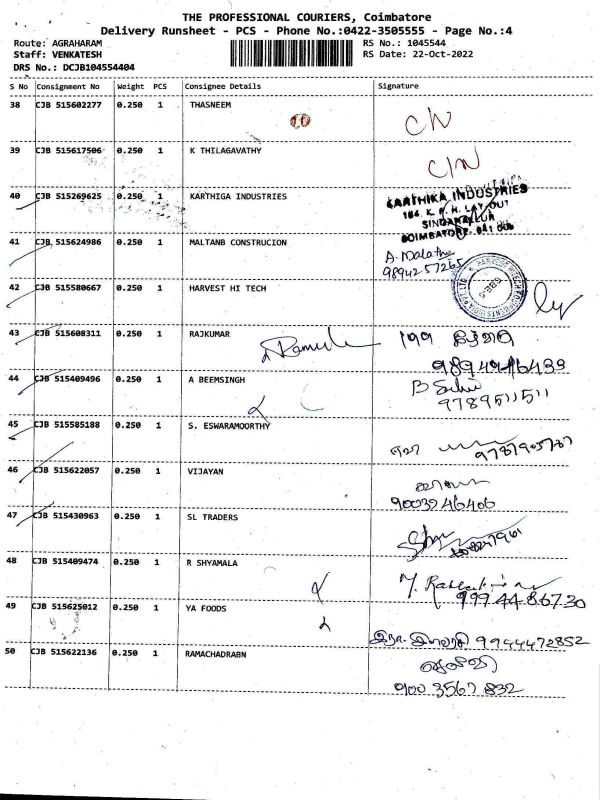 THE PROFESSIONAL COURIERS, Coimbatore
Delivery Runsheet - PCS - Phone No.:0422-3505555 - Page No.:4
Route: AGRAHARAM RS No.: 1045544
Staff: VENKATESH RS Date: 22-Oct-2022
DRS No.: DCJB104554404
S No Consignment No Weight PCS Consignee Details Signature
38 CJB 515602277 0.250 1 THASNEEM
39 CJB 515617506 0.250 1 K THILAGAVATHY
40 CJB 515269625 0.250 1 KARTHIGA INDUSTRIES KARTHIKA INDUSTRIES
SINGANALLUR
COIMBATORE
41 CJB 515624986 0.250 1 MALTANB CONSTRUCION A. Malathi
9894257265
42 CJB 515580667 0.250 1 HARVEST HI TECH
43 CJB 515608311 0.250 1 RAJKUMAR
44 CJB 515409496 0.250 1 A BEEMSINGH
9789511511
45 CJB 515585188 0.250 1 S. ESWARAMOORTHY
46 CJB 515622057 0.250 1 VIJAYAN
9003246406
47 CJB 515430963 0.250 1 SL TRADERS
48 CJB 515409474 0.250 1 R SHYAMALA
999 44 867 30
49 CJB 515625012 0.250 1 YA FOODS
9944472852
50 CJB 515622136 0.250 1 RAMACHADRABN
900 3567 832